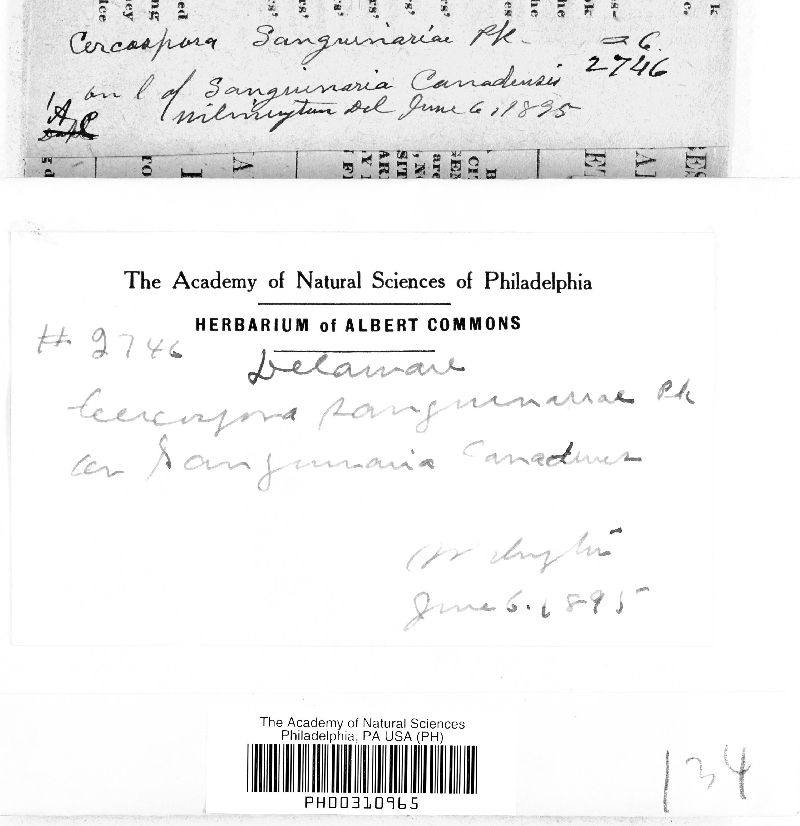 Cercospora Sanguinariae Pk. = 6.
2746
on l of Sanguinaria Canadensis
Wilmington Del June 6, 1895
The Academy of Natural Sciences of Philadelphia
HERBARIUM of ALBERT COMMONS
# 2746
Delaware
Cercospora sanguinariae Pk
on Sanguinaria Canadensis
Wilmington
June 6. 1895
The Academy of Natural Sciences
Philadelphia, PA USA (PH)
PH00310965
134